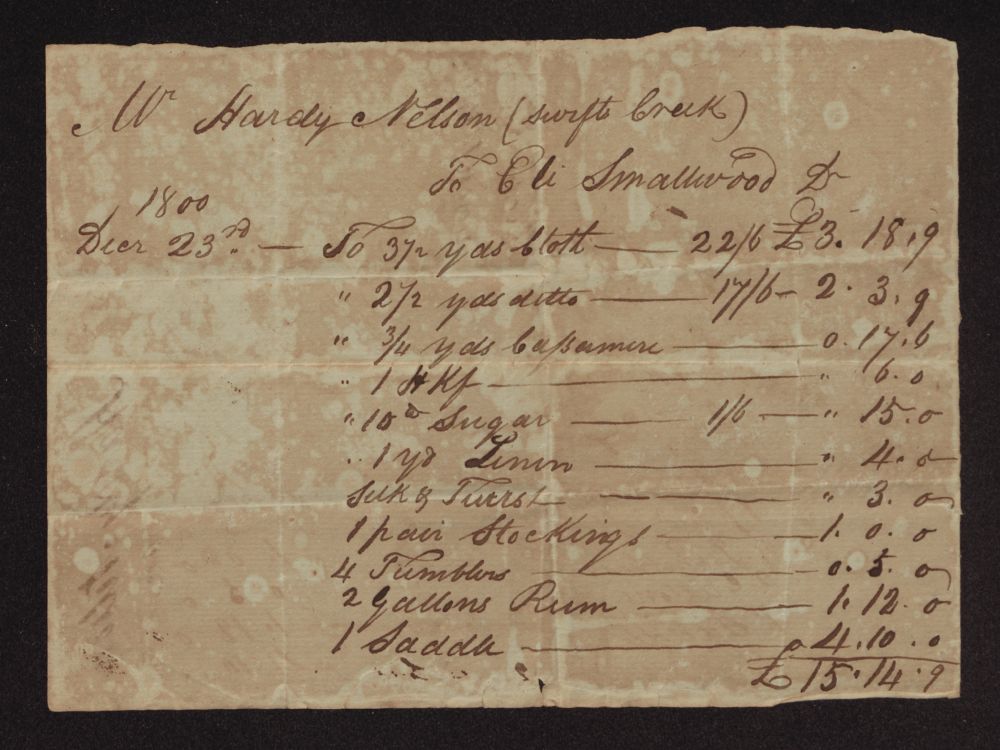 Mr Hardy Nelson (swift Creek)
To Eli Smallwood Dr
1800
Decr 23rd. — To 3 1/2 yds Cloth — 22/6 £3. 18. 9
" 2 1/2 yds ditto — 17/6 — 2. 3. 9
" 3/4 yds Caßamere — 0. 17. 6
" 1 HKf — " 6. 0
" 10 Sugar — 1/6 — " 15. 0
" 1 yd Linin — " 4. 0
Silk & Twist — " 3. 0
1 pair Stockings — 1. 0. 0
4 Tumblers — 0. 5. 0
2 Gallons Rum — 1. 12. 0
1 Saddle — 4. 10. 0
£ 15. 14. 9